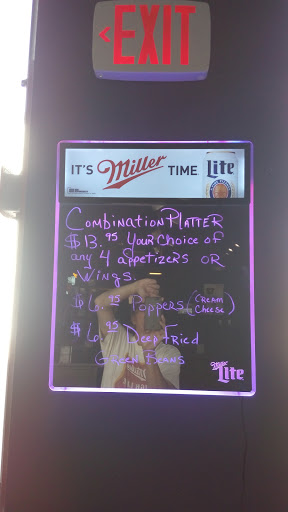 EXIT
IT'S Miller TIME Lite
COMBINATION PLATTER
$13.95 YOUR CHOICE OF
any 4 appetizers OR
WINGS.
$6.95 POPPERS (CREAM CHEESE)
$6.95 DEEP FRIED
GREEN BEANS
Miller Lite